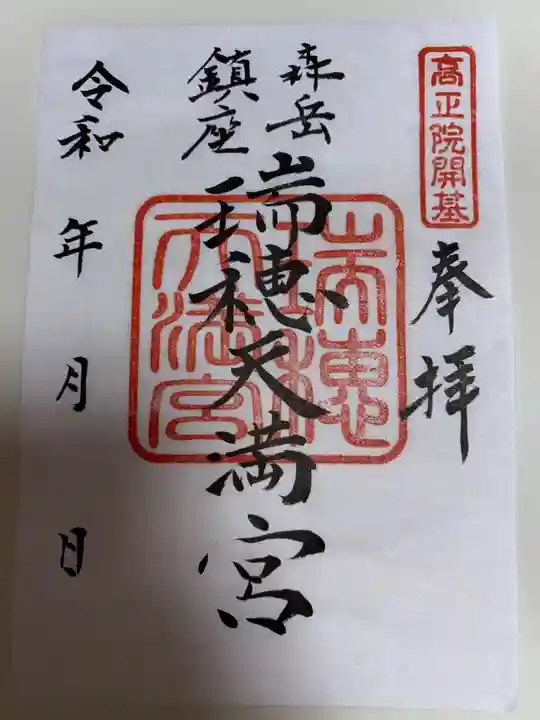 高正院開基
奉拝
森岳
鎮座
瑞穂天満宮
瑞穂
天満宮
令和 年 月 日